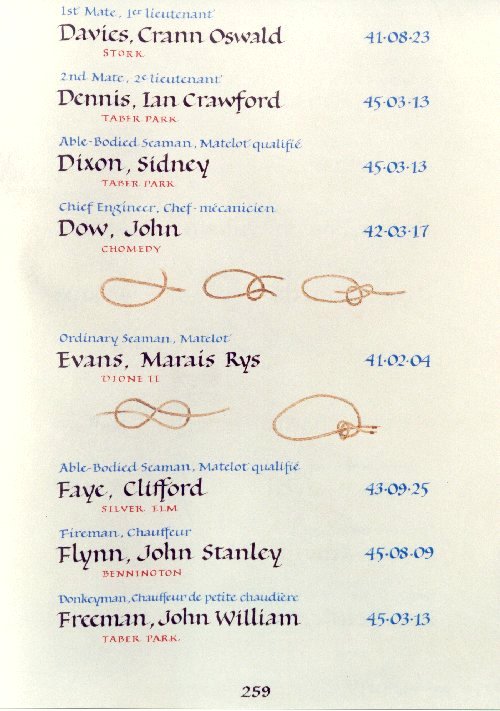 1st Mate, 1er lieutenant
Davies, Crann Oswald 41·08·23
STORK
2nd Mate, 2e lieutenant
Dennis, Ian Crawford 45·03·13
TABER PARK
Able-Bodied Seaman, Matelot qualifié
Dixon, Sidney 45·03·13
TABER PARK
Chief Engineer, Chef-mécanicien
Dow, John 42·03·17
CHOMEDY
Ordinary Seaman, Matelot
Evans, Marais Rys 41·02·04
DIONE II
Able-Bodied Seaman, Matelot qualifié
Faye, Clifford 43·09·25
SILVER ELM
Fireman, Chauffeur
Flynn, John Stanley 45·08·09
BENNINGTON
Donkeyman, Chauffeur de petite chaudière
Freeman, John William 45·03·13
TABER PARK.
259